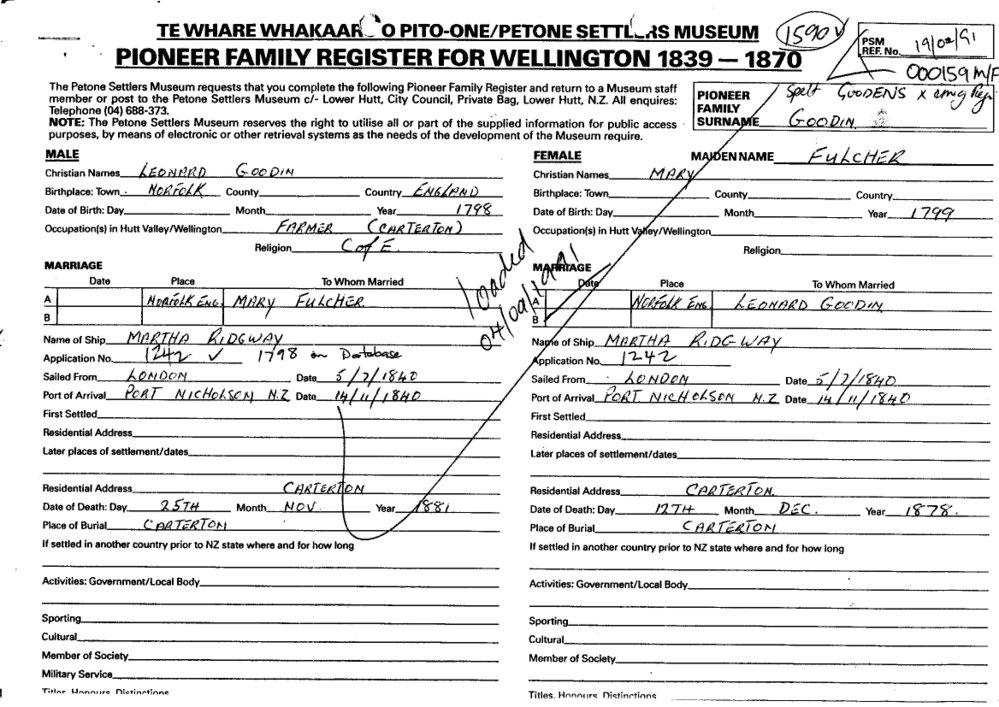 TE WHARE WHAKAAR O PITO-ONE/PETONE SETTLERS MUSEUM
1590
PIONEER FAMILY REGISTER FOR WELLINGTON 1839 — 1870
PSM REF. No. 19/02/91
000159 M/F
The Petone Settlers Museum requests that you complete the following Pioneer Family Register and return to a Museum staff
member or post to the Petone Settlers Museum c/- Lower Hutt, City Council, Private Bag, Lower Hutt, N.Z. All enquires:
Telephone (04) 688-373.
NOTE: The Petone Settlers Museum reserves the right to utilise all or part of the supplied information for public access
purposes, by means of electronic or other retrieval systems as the needs of the development of the Museum require.
PIONEER FAMILY SURNAME
Spelt GOODENS x emig
GOODIN
MALE
Christian Names LEONARD GOODIN
Birthplace: Town NORFOLK County Country ENGLAND
Date of Birth: Day Month Year 1798
Occupation(s) in Hutt Valley/Wellington FARMER (CARTERTON)
Religion C of E
MARRIAGE
Date Place To Whom Married
A NORFOLK ENG. MARY FULCHER
B
Name of Ship MARTHA RIDGWAY
Application No. 1242 ✓ 1798 on Database
Sailed From LONDON Date 5/7/1840
Port of Arrival PORT NICHOLSON N.Z Date 14/11/1840
First Settled
Residential Address
Later places of settlement/dates
Residential Address CARTERTON
Date of Death: Day 25TH Month NOV Year 1881
Place of Burial CARTERTON
If settled in another country prior to NZ state where and for how long
Activities: Government/Local Body
Sporting
Cultural
Member of Society
Military Service
Titles, Honours, Distinctions
loaded
FEMALE MAIDEN NAME FULCHER
Christian Names MARY
Birthplace: Town County Country
Date of Birth: Day Month Year 1799
Occupation(s) in Hutt Valley/Wellington
Religion
MARRIAGE
Date Place To Whom Married
A NORFOLK ENG. LEONARD GOODIN
B
Name of Ship MARTHA RIDGWAY
Application No. 1242
Sailed From LONDON Date 5/7/1840
Port of Arrival PORT NICHOLSON N.Z Date 14/11/1840
First Settled
Residential Address
Later places of settlement/dates
Residential Address CARTERTON
Date of Death: Day 12TH Month DEC. Year 1878.
Place of Burial CARTERTON
If settled in another country prior to NZ state where and for how long
Activities: Government/Local Body
Sporting
Cultural
Member of Society
Titles, Honours, Distinctions